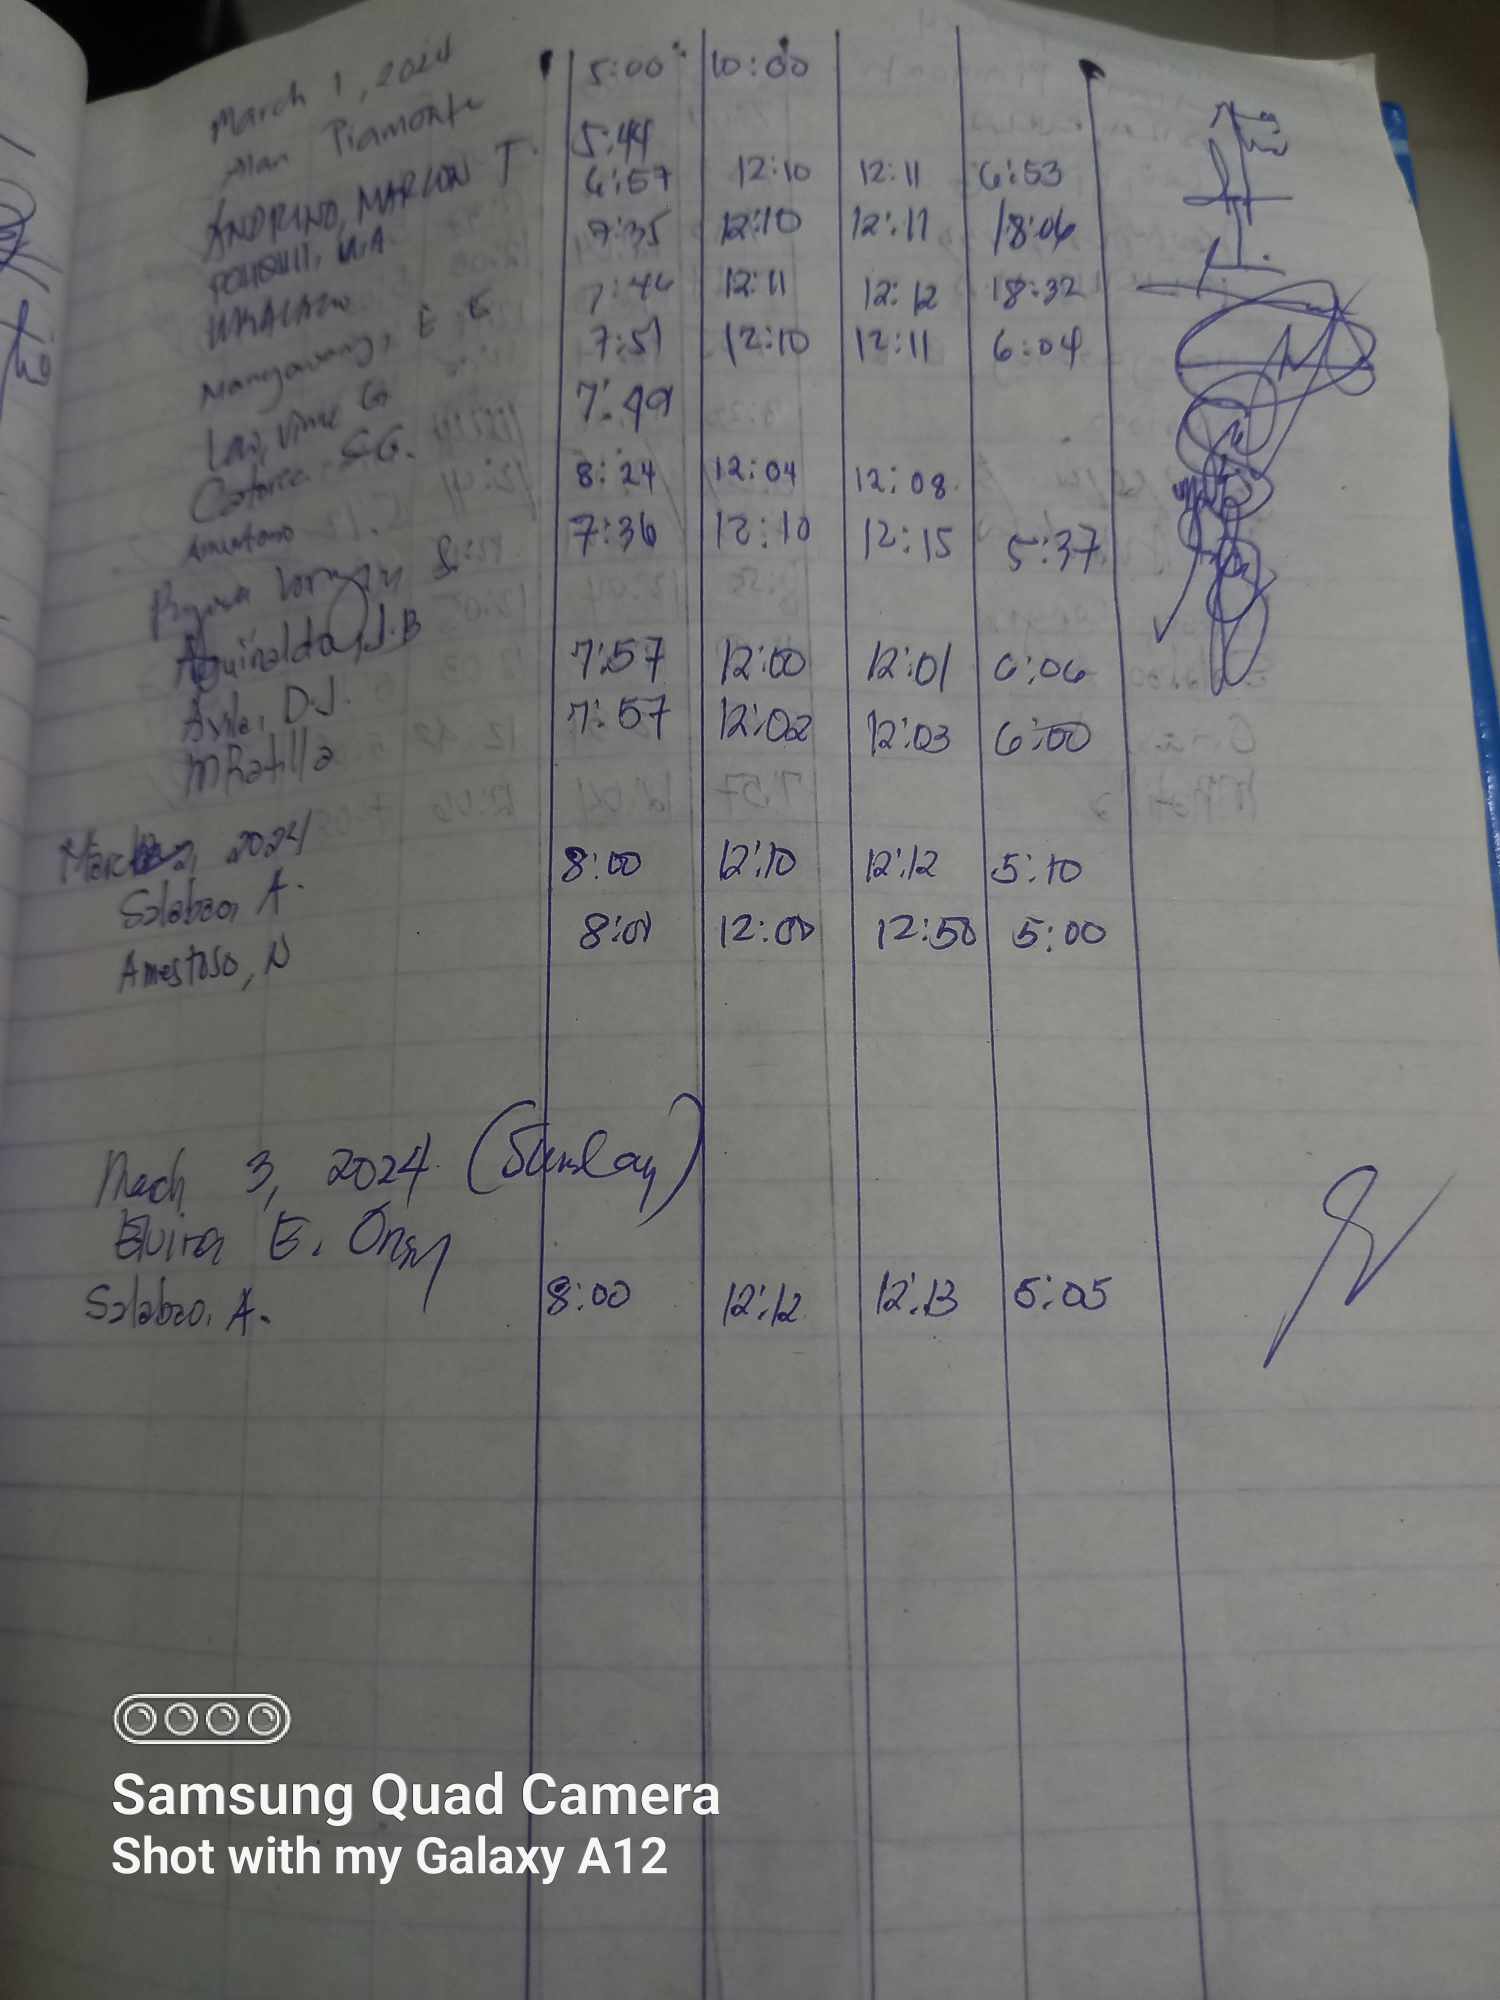 March 1, 2024
Alan Piamonte 5:00 10:00
ANDRINO, MARLON T. 5:44
6:57 12:10 12:11 6:53
7:35 12:10 12:11 18:06
Mangawang, E E 7:46 12:11 12:12 18:32
Lao, Vime G. 7:51 12:10 12:11 6:04
S.G. 7:49
8:24 12:04 12:08
7:36 12:10 12:15 5:37
Aguinaldo, J.B 7:57 12:00 12:01 6:06
Avila, D.J. 7:57 12:02 12:03 6:00
MRatilla
March 2, 2024
Salabao, A. 8:00 12:10 12:12 5:10
Amestoso, N 8:01 12:00 12:50 5:00
Mach 3, 2024 (Sunday)
Elvira E. Ongy
Salabao, A. 8:00 12:12 12:13 5:05
Samsung Quad Camera
Shot with my Galaxy A12